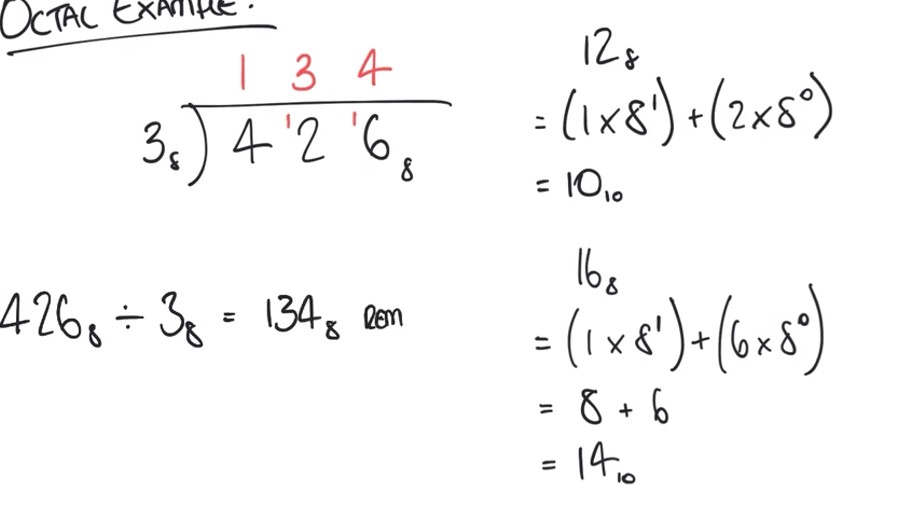 OCTAL EXAMPLE:
1 3 4
3₈ ) 4 ¹2 ¹6₈
426₈ ÷ 3₈ = 134₈ REM
12₈
= (1×8¹) + (2×8⁰)
= 10₁₀
16₈
= (1×8¹) + (6×8⁰)
= 8 + 6
= 14₁₀